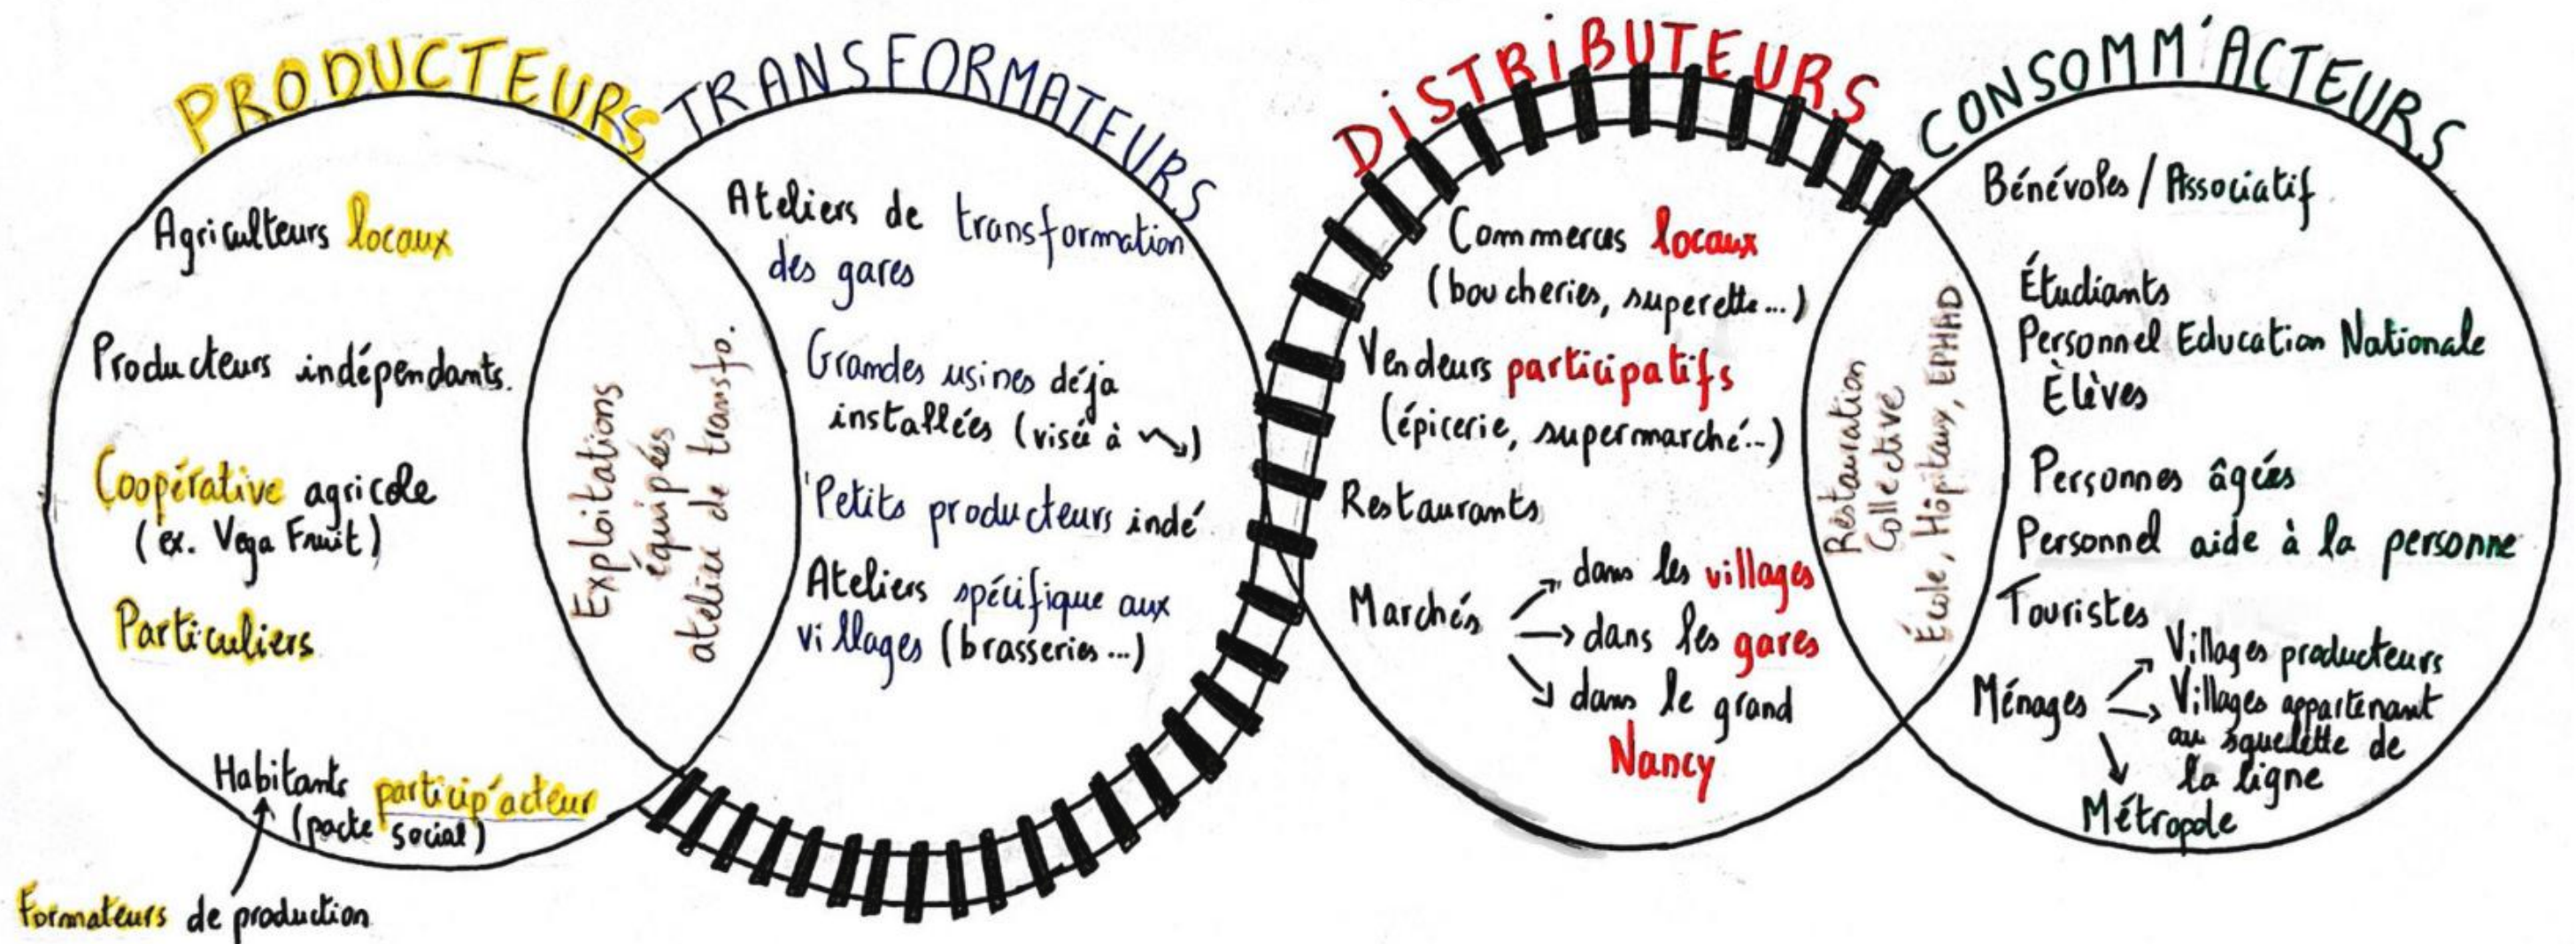 PRODUCTEURS
Agriculteurs locaux
Producteurs indépendants.
Coopérative agricole
(ex. Vega Fruit)
Particuliers
Habitants particip'acteur
(pacte social)
Formateurs de production
Exploitations
équipées
atelier de transfo.
TRANSFORMATEURS
Ateliers de transformation
des gares
Grandes usines déja
installées (visée à ↘)
Petits producteurs indé
Ateliers spécifique aux
villages (brasseries...)
DISTRIBUTEURS
Commerces locaux
(boucheries, superette...)
Vendeurs participatifs
(épicerie, supermarché...)
Restaurants
Marchés
→ dans les villages
→ dans les gares
→ dans le grand
Nancy
Restauration
Collective
École, Hôpitaux, EPHAD
CONSOMM'ACTEURS
Bénévoles / Associatif
Étudiants
Personnel Education Nationale
Élèves
Personnes âgées
Personnel aide à la personne
Touristes
Ménages
→ Villages producteurs
→ Villages appartenant
au squelette de
la ligne
→ Métropole